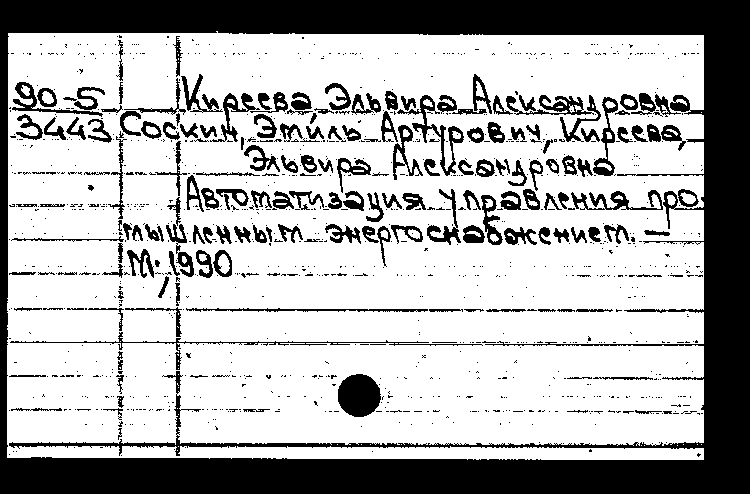 90-5 Киреева, Эльвира Александровна
3443 Соскин, Эмиль Артурович, Киреева,
Эльвира Александровна
Автоматизация управления про-
мышленным энергоснабжением. —
М., 1990